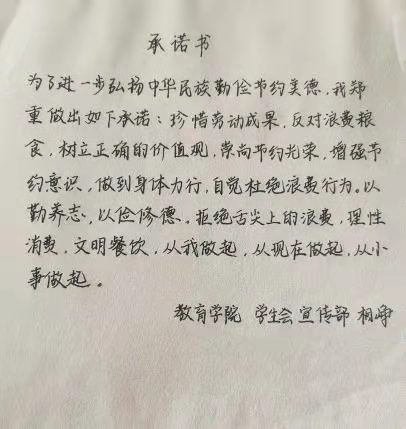 承诺书
为了进一步弘扬中华民族勤俭节约美德,我郑
重做出如下承诺:珍惜劳动成果,反对浪费粮
食,树立正确的价值观,崇尚节约光荣,增强节
约意识,做到身体力行,自觉杜绝浪费行为。以
勤养志,以俭修德。拒绝舌尖上的浪费,理性
消费,文明餐饮,从我做起,从现在做起,从小
事做起。
教育学院 学生会 宣传部